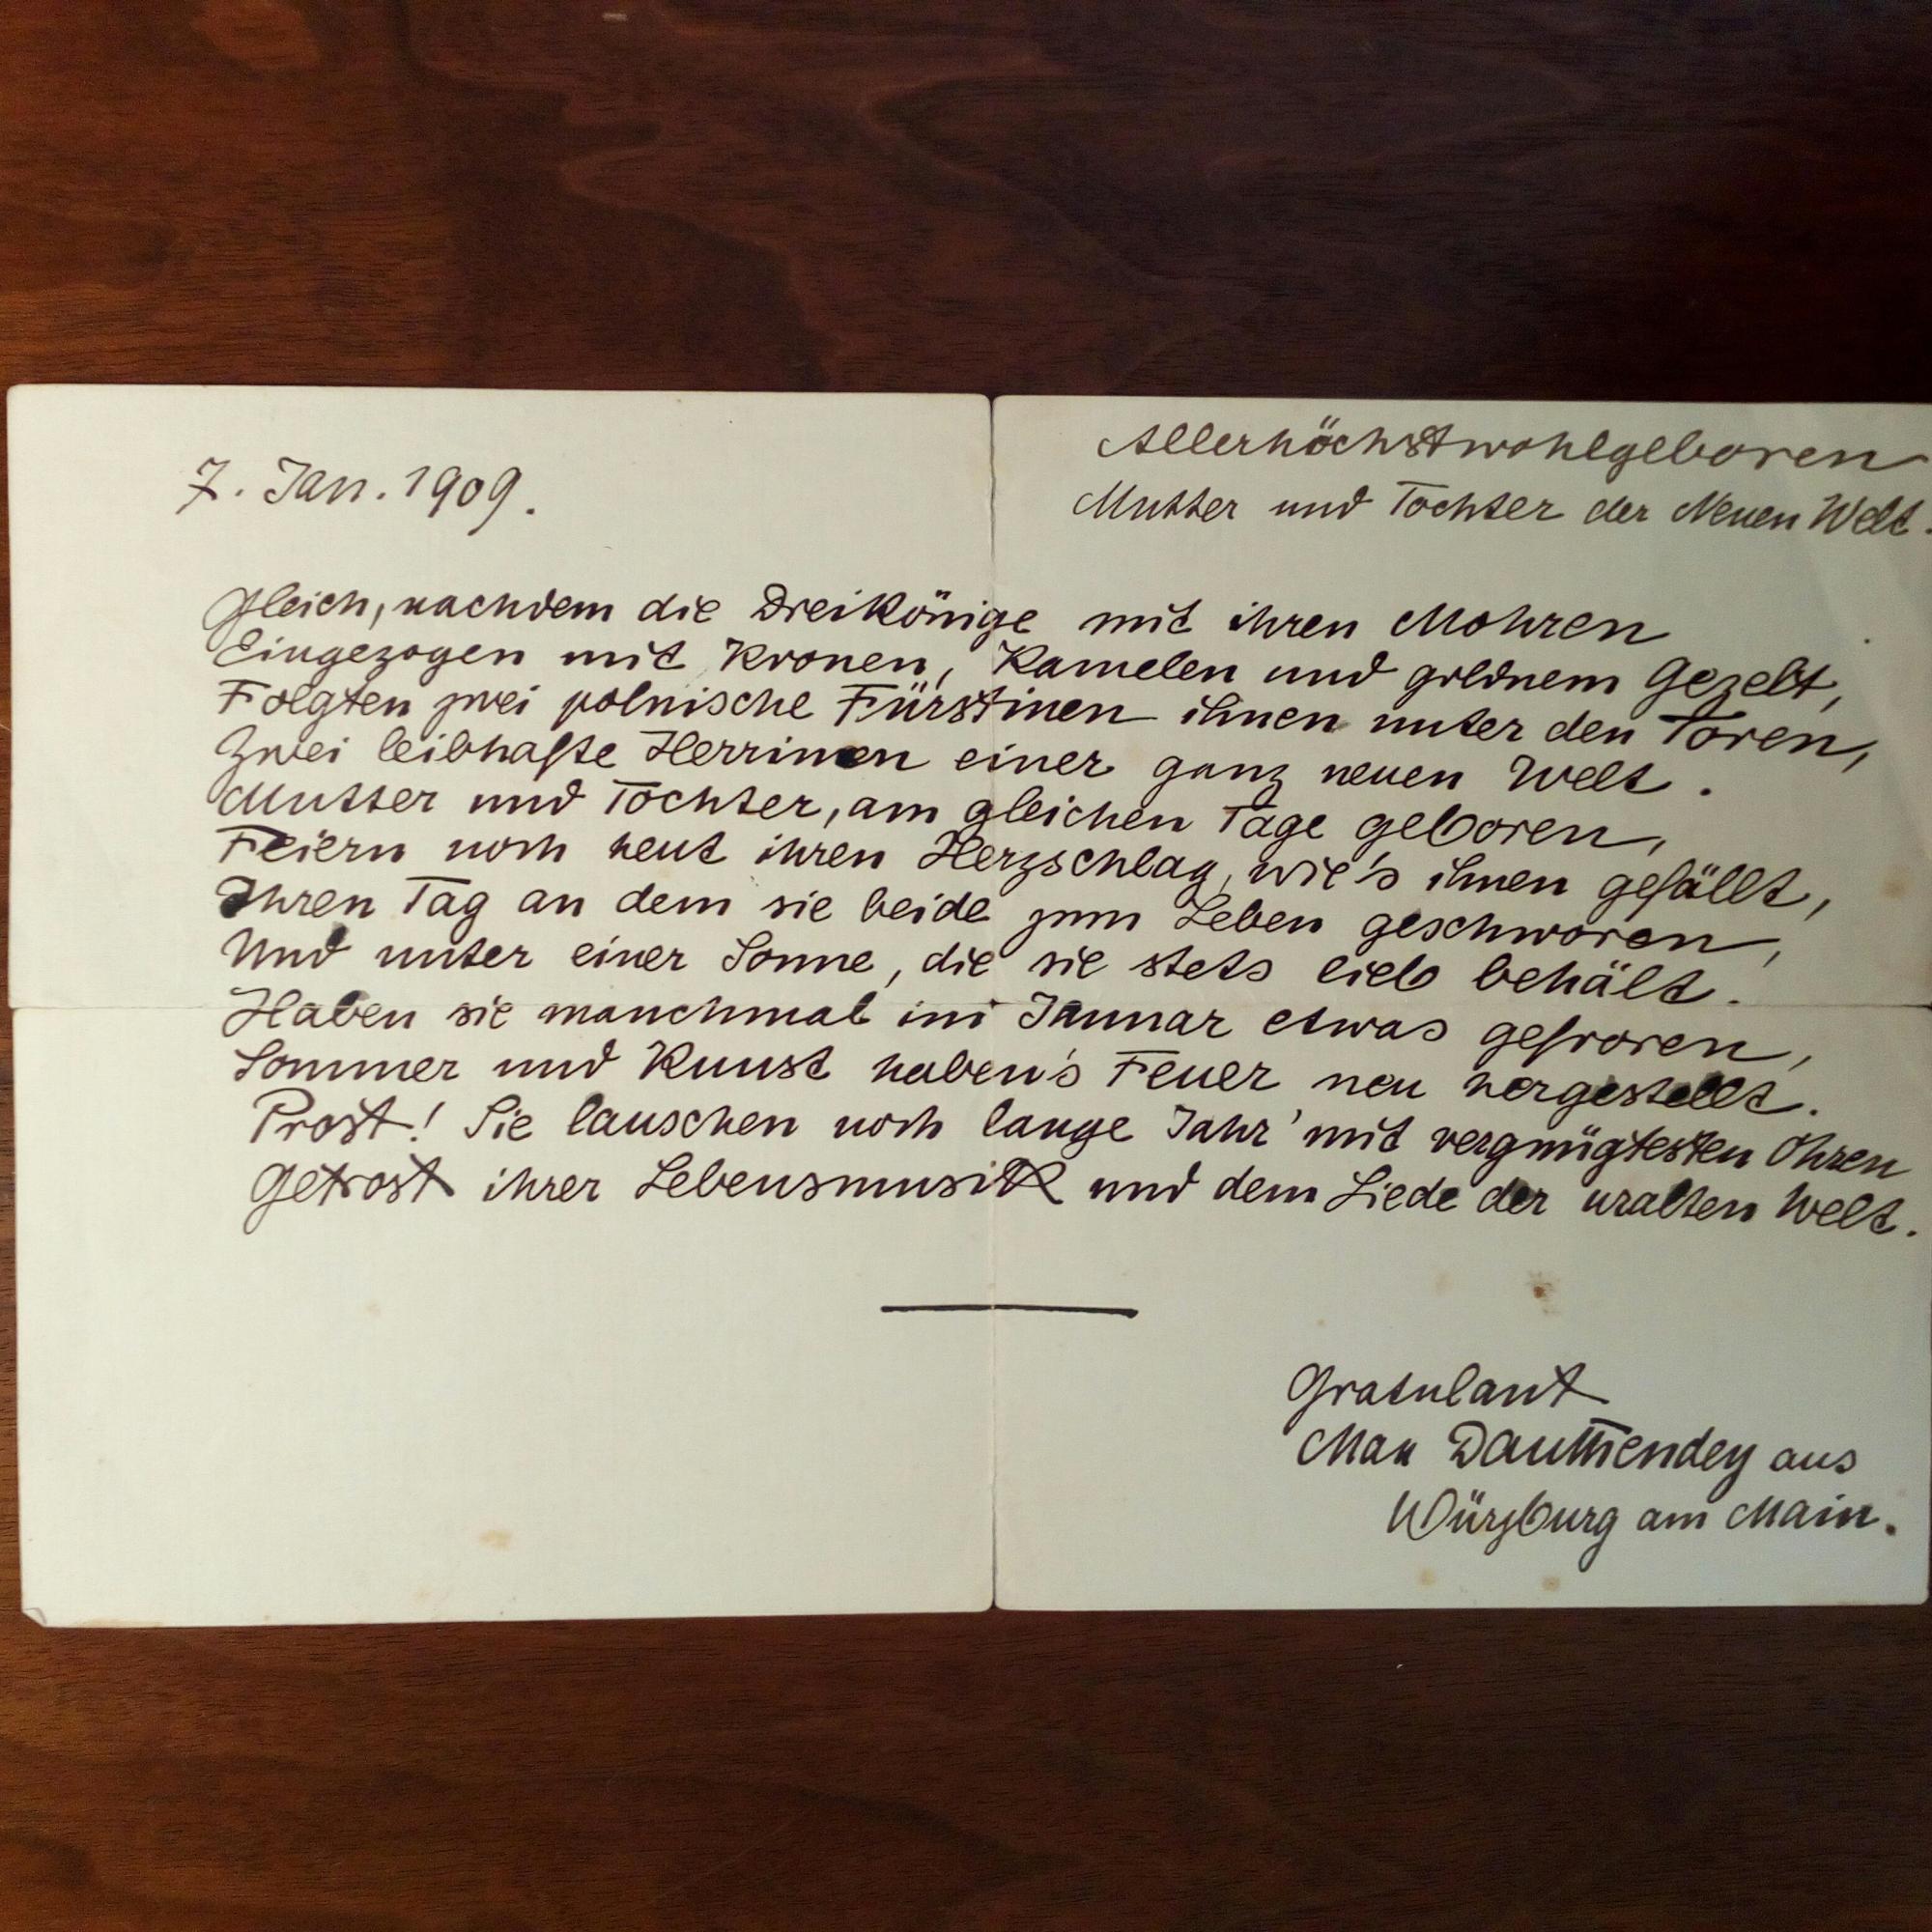 7. Jan. 1909.
Allerhöchstwohlgeboren
Mutter und Tochter der Neuen Welt.
Gleich, nachdem die Dreikönige mit ihren Mohren
Eingezogen mit Kronen, Kamelen und goldnem Gezelt,
Folgten zwei polnische Fürstinen ihnen unter den Toren,
Zwei leibhafte Herrinen einer ganz neuen Welt.
Mutter und Tochter, am gleichen Tage geboren,
Feiern noch heut ihren Herzschlag, wie's ihnen gefällt,
Ihren Tag an dem sie beide zum Leben geschworen,
Und unter einer Sonne, die sie stets lieb behält.
Haben sie manchmal im Januar etwas gefroren,
Sommer und Kunst haben's Feuer neu hergestellt.
Prost! Sie lauschen noch lange Jahr' mit vergnügtesten Ohren
Getrost ihrer Lebensmusik und dem Liede der uralten Welt.
Gratulant
Max Dauthendey aus
Würzburg am Main.